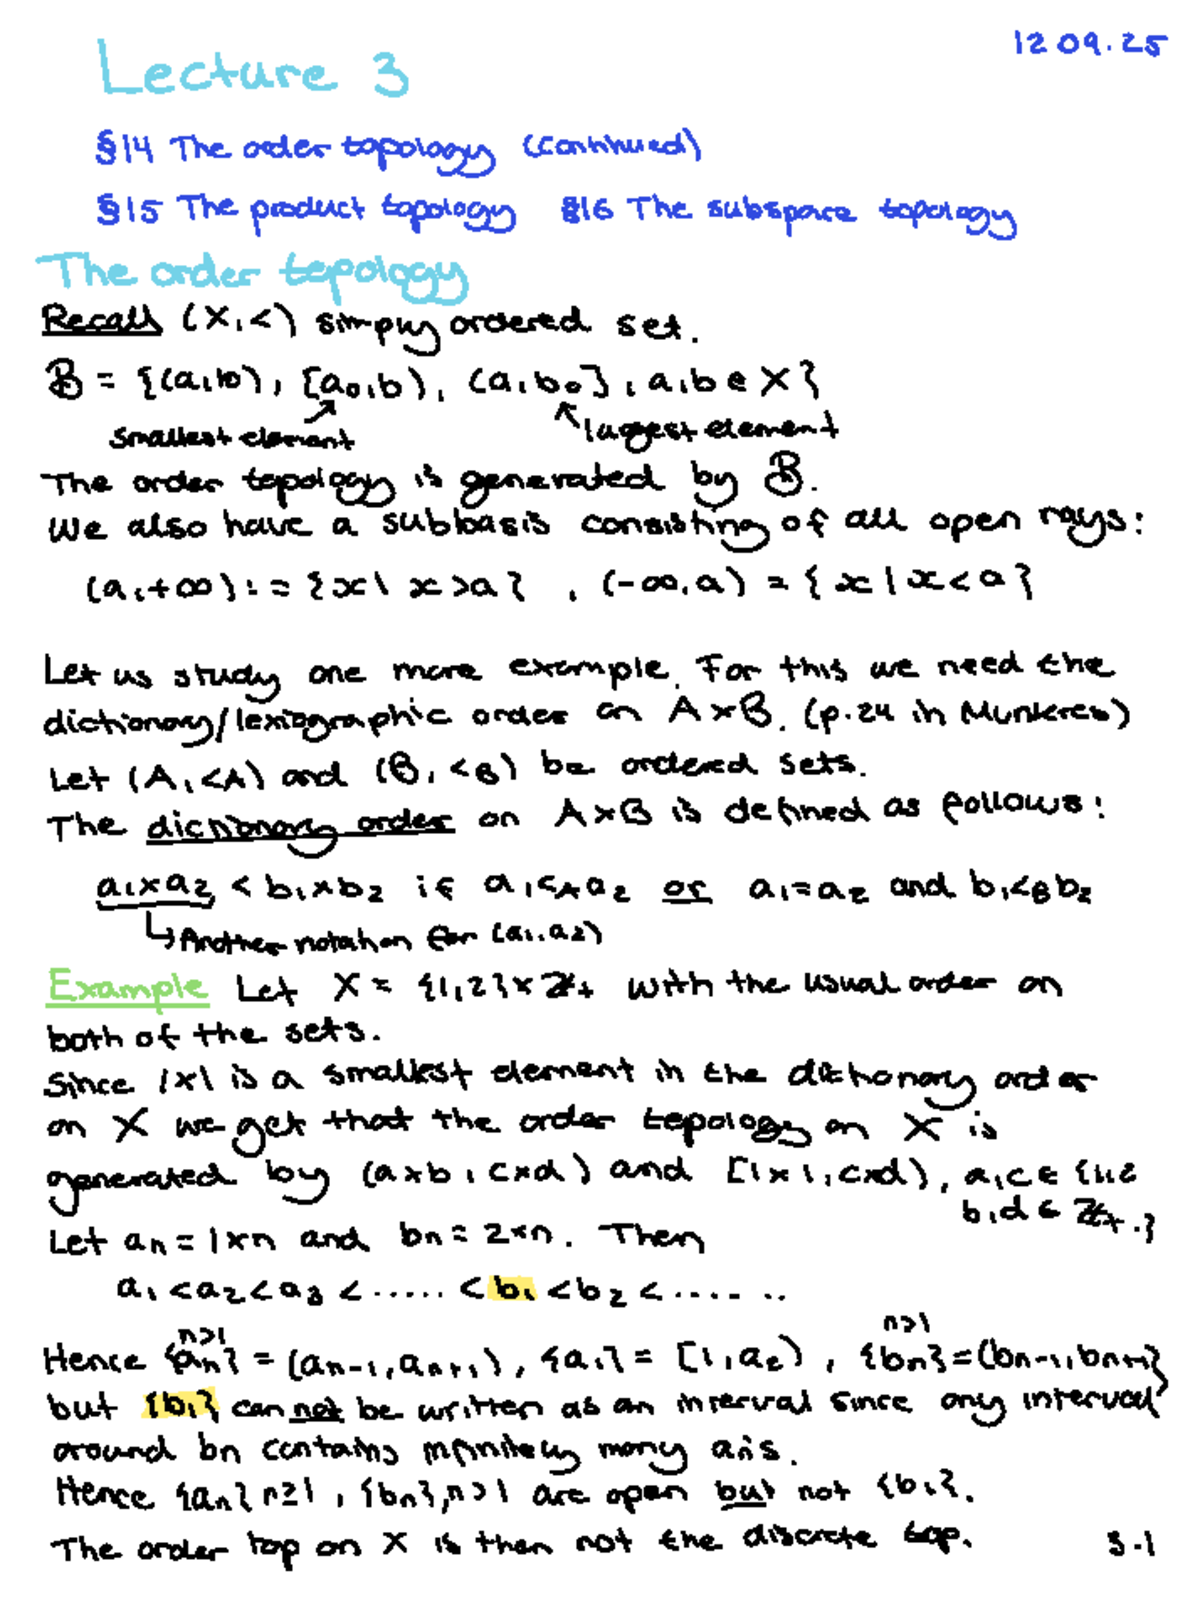 12.09.25
Lecture 3
§14 The order topology (continued)
§15 The product topology §16 The subspace topology
The order topology
Recall (X,<) simply ordered set.
B = {(a,b), [a₀,b), (a,b₀], a,b ∈ X}
smallest element largest element
The order topology is generated by B.
We also have a subbasis consisting of all open rays:
(a,+∞) := {x | x>a} , (-∞,a) = {x | x<a}
Let us study one more example. For this we need the
dictionary/lexiographic order on A×B. (p.24 in Munkres)
Let (A,<A) and (B,<B) be ordered sets.
The dictionary order on A×B is defined as follows:
a₁×a₂ < b₁×b₂ if a₁<A a₂ or a₁=a₂ and b₁<B b₂
↳ Another notation for (a₁,a₂)
Example Let X = {1,2}×ℤ₊ with the usual order on
both of the sets.
Since 1×1 is a smallest element in the dictionary order
on X we get that the order topology on X is
generated by (a×b, c×d) and [1×1, c×d), a,c ∈ {1,2
b,d ∈ ℤ₊.}
Let aₙ = 1×n and bₙ = 2×n. Then
a₁<a₂<a₃<.....<b₁<b₂<......
n>1 n>1
Hence {aₙ} = (aₙ₋₁,aₙ₊₁), {a₁} = [1,a₂), {bₙ}=(bₙ₋₁,bₙ₊₁),
but {b₁} cannot be written as an interval since any interval
around bₙ contains infinitely many aₙ's.
Hence {aₙ} n≥1, {bₙ}, n>1 are open but not {b₁}.
The order top on X is then not the discrete top.
3-1